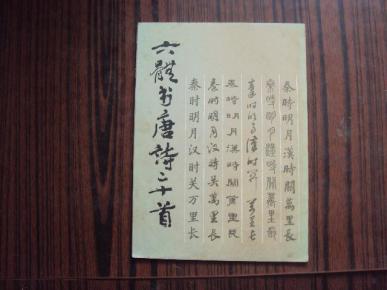 秦時明月漢時關萬里長
秦時明月漢時關萬里長
秦時明月漢時關萬里長
秦時明月漢時關萬里長
秦時明月汉時关萬里長
秦时明月汉时关万里长
六體书唐詩二十首